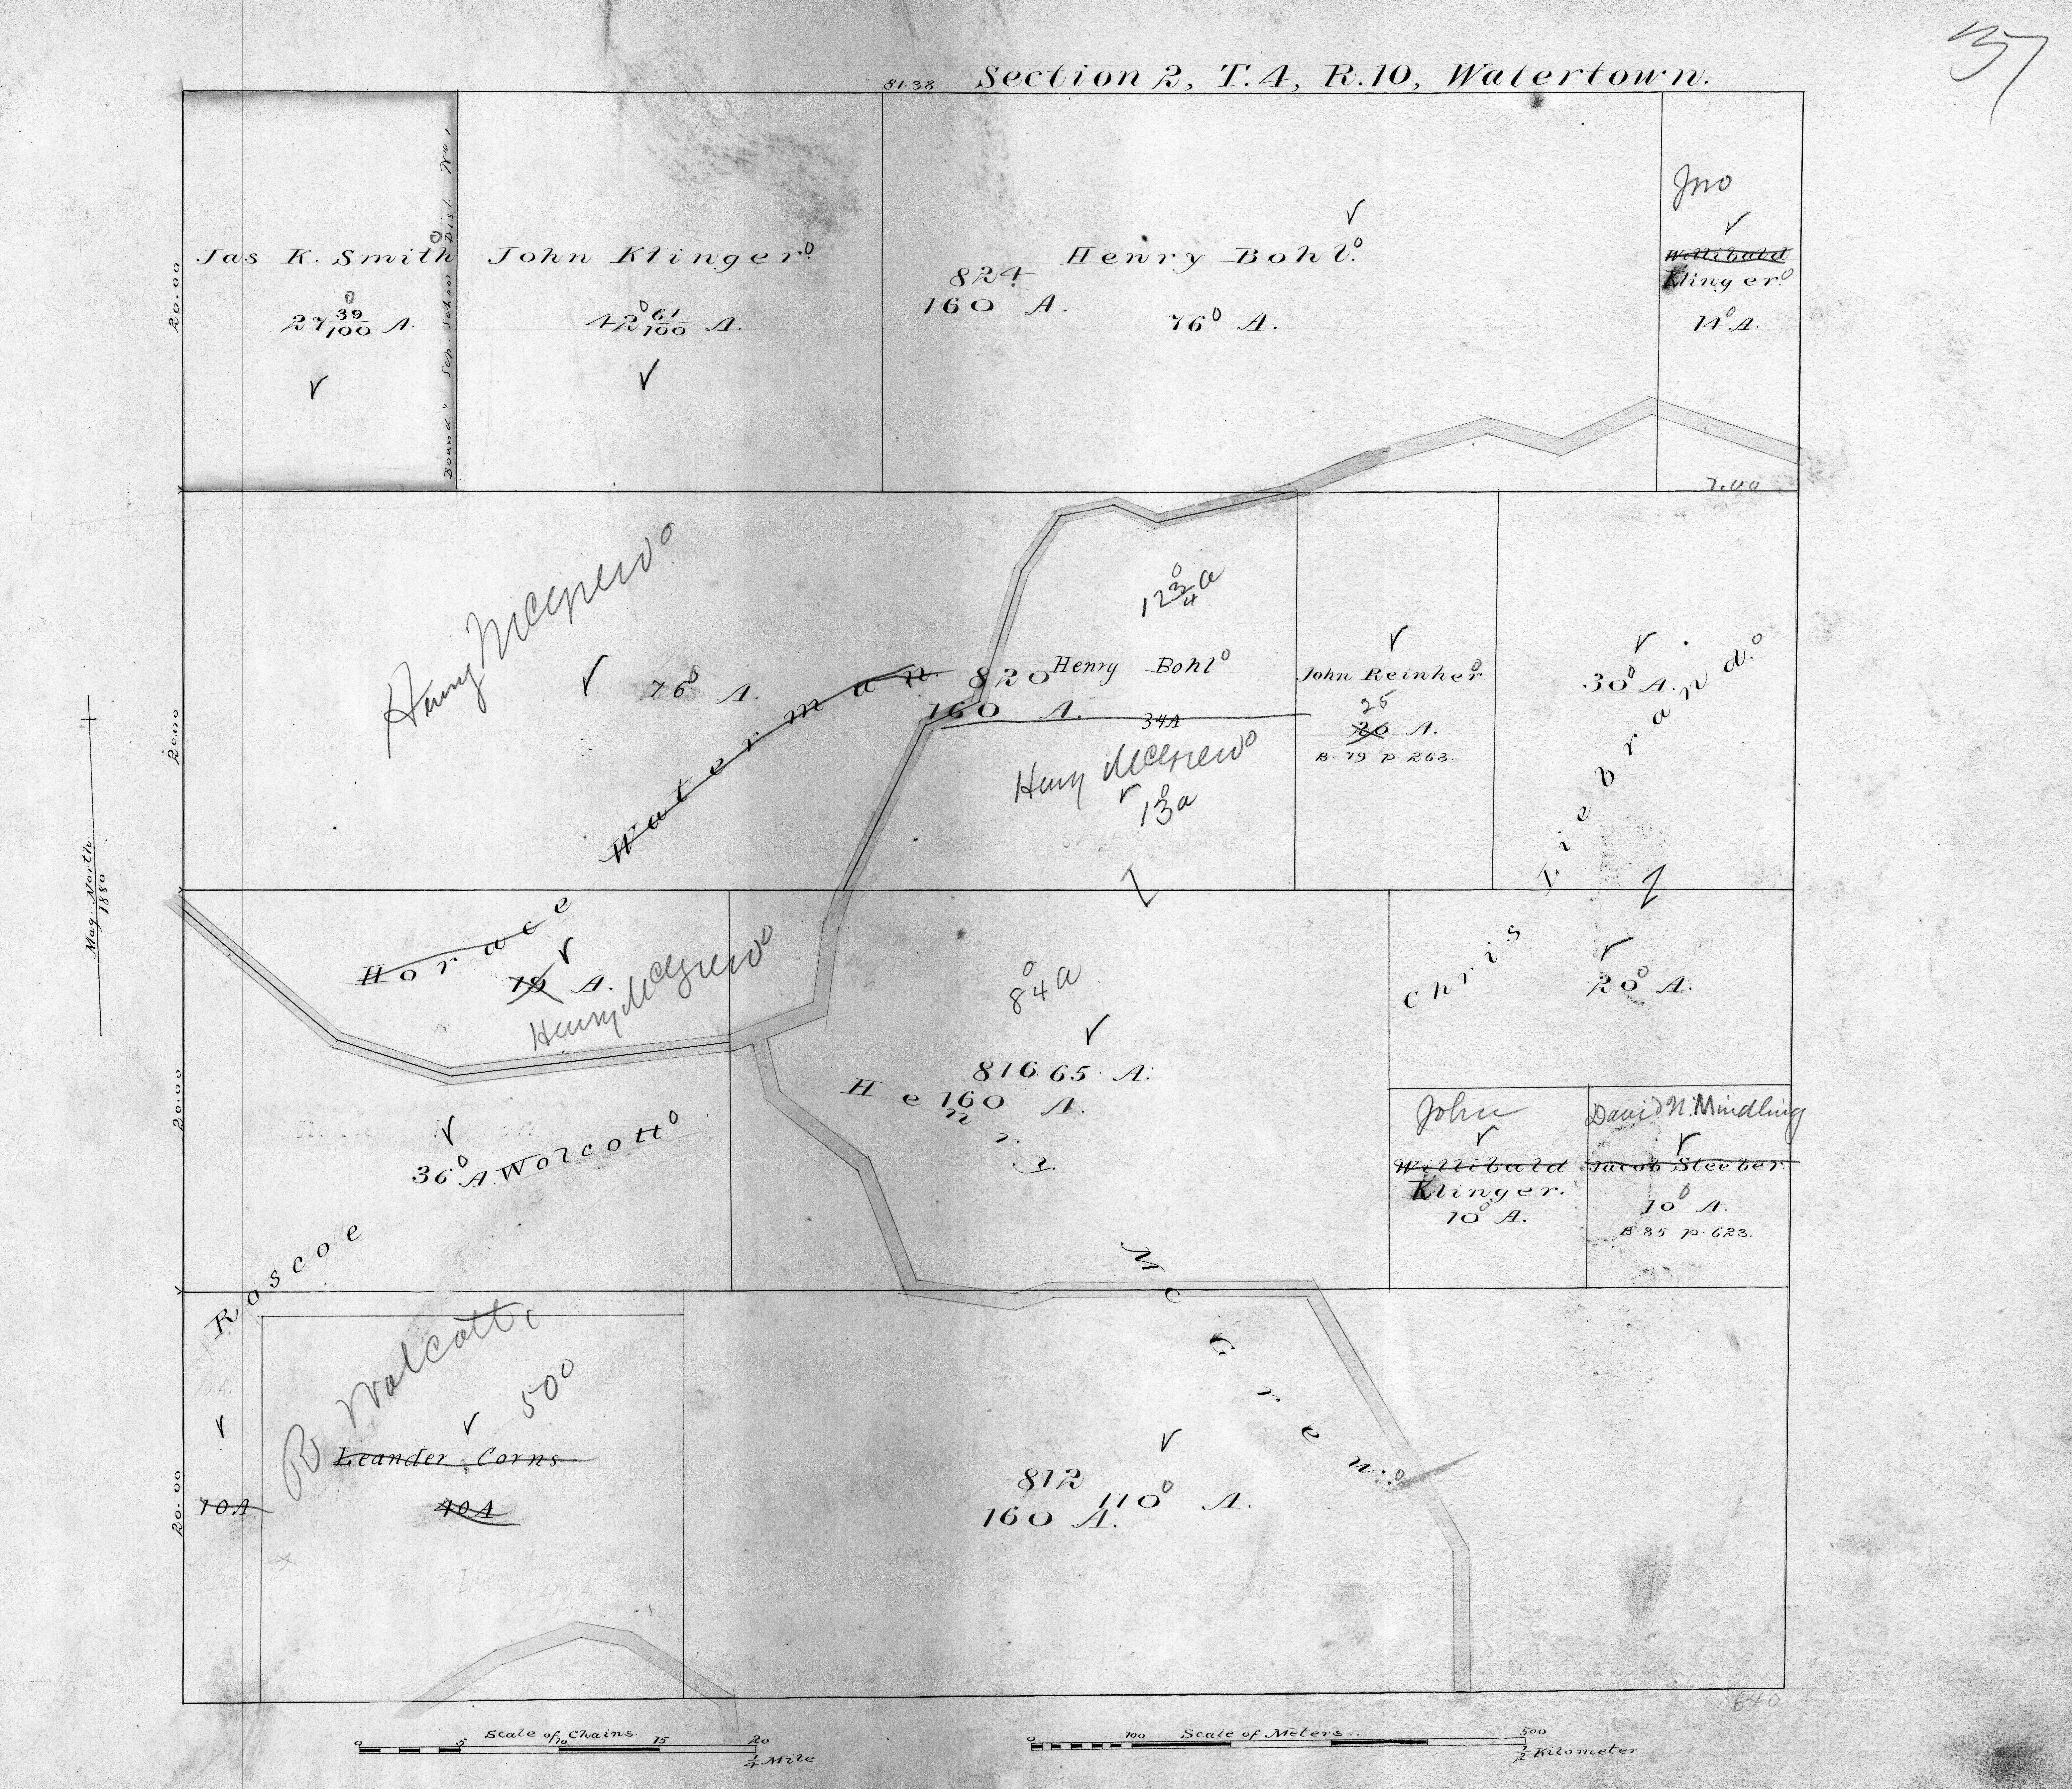 37
81.38 Section 2, T.4, R.10, Watertown.
20.00
Jas K. Smith
27 39/100 A.
Bound'y Sep. School Dist. No 1
John Klinger.
42 61/100 A.
824
160 A.
Henry Bohl.
76 A.
Jno
Willibald
Klinger
14 A.
7.00
20.00
Henry McGrew
76 A.
Waterman
820
160 A.
12 3/4 a
Henry Bohl
34A
Henry McGrew
13 a
John Reinher
25
26 A.
B. 79 p. 263.
30 A.
Chris Liebrand.
Mag. North
1880
20.00
Horace
A.
Henry McGrew
84 a
816 65 A.
160 A.
Henry McGrew.
20 A.
36 A.
Roscoe Wolcott
John
Willibald
Klinger.
10 A.
David N. Mindling
Jacob Steeber
10 A.
B. 85 p. 623.
20.00
10A
R Wolcott
50
Leander Corns
40A
812
160 A.
110 A.
640
Scale of Chains.
0 5 10 15 20
1/4 Mile
Scale of Meters.
0 100 500
1/2 Kilometer